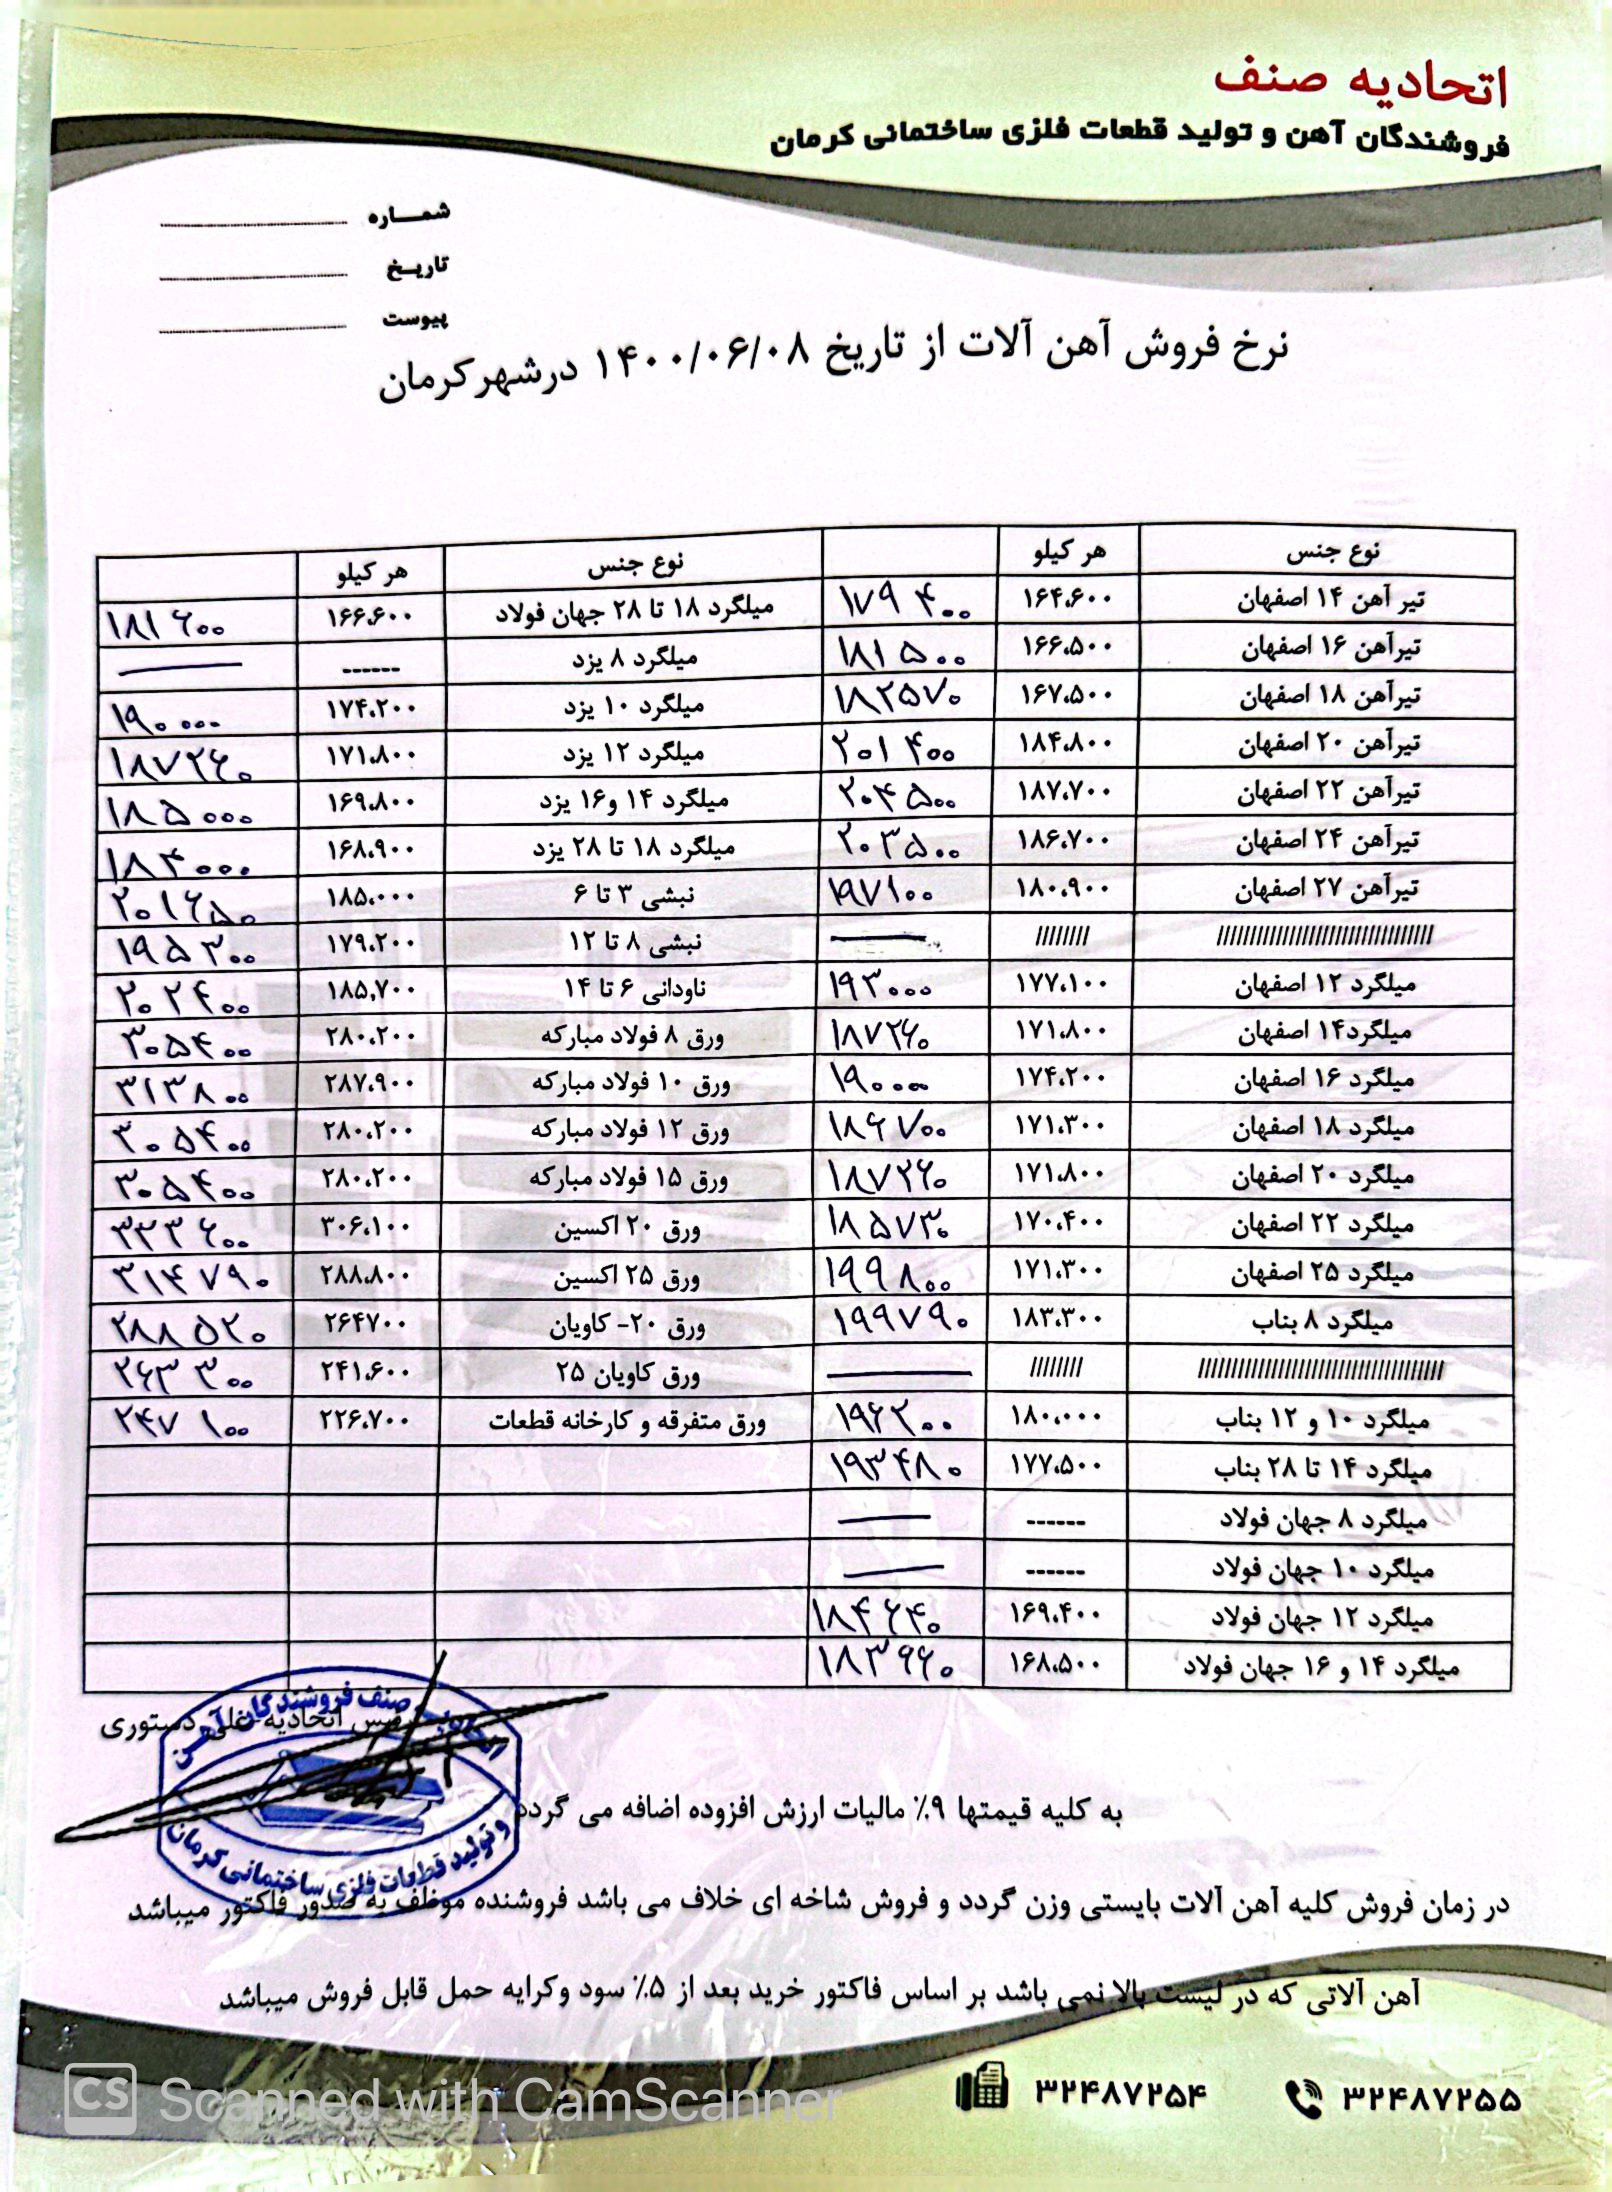 اتحادیه صنف
فروشندگان آهن و تولید قطعات فلزی ساختمانی کرمان
شمـــاره
تاریـخ
پیوست
نرخ فروش آهن آلات از تاریخ ۱۴۰۰/۰۶/۰۸ درشهرکرمان
نوع جنس هر کیلو نوع جنس هر کیلو
تیر آهن ۱۴ اصفهان ۱۶۴،۶۰۰ ۱۷۹۴۰۰ میلگرد ۱۸ تا ۲۸ جهان فولاد ۱۶۶،۶۰۰ ۱۸۱۶۰۰
تیرآهن ۱۶ اصفهان ۱۶۶،۵۰۰ ۱۸۱۵۰۰ میلگرد ۸ یزد ------
تیرآهن ۱۸ اصفهان ۱۶۷،۵۰۰ ۱۸۲۵۷۰ میلگرد ۱۰ یزد ۱۷۴،۲۰۰ ۱۹۰۰۰۰
تیرآهن ۲۰ اصفهان ۱۸۴،۸۰۰ ۲۰۱۴۰۰ میلگرد ۱۲ یزد ۱۷۱،۸۰۰ ۱۸۷۲۶۰
تیرآهن ۲۲ اصفهان ۱۸۷،۷۰۰ ۲۰۴۵۰۰ میلگرد ۱۴ و۱۶ یزد ۱۶۹،۸۰۰ ۱۸۵۰۰۰
تیرآهن ۲۴ اصفهان ۱۸۶،۷۰۰ ۲۰۳۵۰۰ میلگرد ۱۸ تا ۲۸ یزد ۱۶۸،۹۰۰ ۱۸۴۰۰۰
تیرآهن ۲۷ اصفهان ۱۸۰،۹۰۰ ۱۹۷۱۰۰ نبشی ۳ تا ۶ ۱۸۵،۰۰۰ ۲۰۱۶۵۰
//////////////////////////////// //////// نبشی ۸ تا ۱۲ ۱۷۹،۲۰۰ ۱۹۵۳۰۰
میلگرد ۱۲ اصفهان ۱۷۷،۱۰۰ ۱۹۳۰۰۰ ناودانی ۶ تا ۱۴ ۱۸۵,۷۰۰ ۲۰۲۴۰۰
میلگرد۱۴ اصفهان ۱۷۱،۸۰۰ ۱۸۷۲۶۰ ورق ۸ فولاد مبارکه ۲۸۰،۲۰۰ ۳۰۵۴۰۰
میلگرد ۱۶ اصفهان ۱۷۴،۲۰۰ ۱۹۰۰۰۰ ورق ۱۰ فولاد مبارکه ۲۸۷،۹۰۰ ۳۱۳۸۰۰
میلگرد ۱۸ اصفهان ۱۷۱،۳۰۰ ۱۸۶۷۰۰ ورق ۱۲ فولاد مبارکه ۲۸۰،۲۰۰ ۳۰۵۴۰۰
میلگرد ۲۰ اصفهان ۱۷۱،۸۰۰ ۱۸۷۲۶۰ ورق ۱۵ فولاد مبارکه ۲۸۰،۲۰۰ ۳۰۵۴۰۰
میلگرد ۲۲ اصفهان ۱۷۰،۴۰۰ ۱۸۵۷۳۰ ورق ۲۰ اکسین ۳۰۶،۱۰۰ ۳۳۳۶۰۰
میلگرد ۲۵ اصفهان ۱۷۱،۳۰۰ ۱۹۹۸۰۰ ورق ۲۵ اکسین ۲۸۸،۸۰۰ ۳۱۴۷۹۰
میلگرد ۸ بناب ۱۸۳،۳۰۰ ۱۹۹۷۹۰ ورق ۲۰- کاویان ۲۶۴۷۰۰ ۲۸۸۵۲۰
//////////////////////////////////// //////// ورق کاویان ۲۵ ۲۴۱،۶۰۰ ۲۶۳۳۰۰
میلگرد ۱۰ و ۱۲ بناب ۱۸۰،۰۰۰ ۱۹۶۲۰۰ ورق متفرقه و کارخانه قطعات ۲۲۶،۷۰۰ ۲۴۷۱۰۰
میلگرد ۱۴ تا ۲۸ بناب ۱۷۷،۵۰۰ ۱۹۳۴۸۰
میلگرد ۸ جهان فولاد ------
میلگرد ۱۰ جهان فولاد ------
میلگرد ۱۲ جهان فولاد ۱۶۹،۴۰۰ ۱۸۴۶۴۰
میلگرد ۱۴ و ۱۶ جهان فولاد ۱۶۸،۵۰۰ ۱۸۳۶۶۰
صنف فروشندگان آهن
و تولید قطعات فلزی ساختمانی کرمان
رئیس اتحادیه-علی دستوری
به کلیه قیمتها ۹٪ مالیات ارزش افزوده اضافه می گردد
در زمان فروش کلیه آهن آلات بایستی وزن گردد و فروش شاخه ای خلاف می باشد فروشنده موظف به صدور فاکتور میباشد
آهن آلاتی که در لیست بالا نمی باشد بر اساس فاکتور خرید بعد از ۵٪ سود وکرایه حمل قابل فروش میباشد
۳۲۴۸۷۲۵۵ ۳۲۴۸۷۲۵۴
CS Scanned with CamScanner